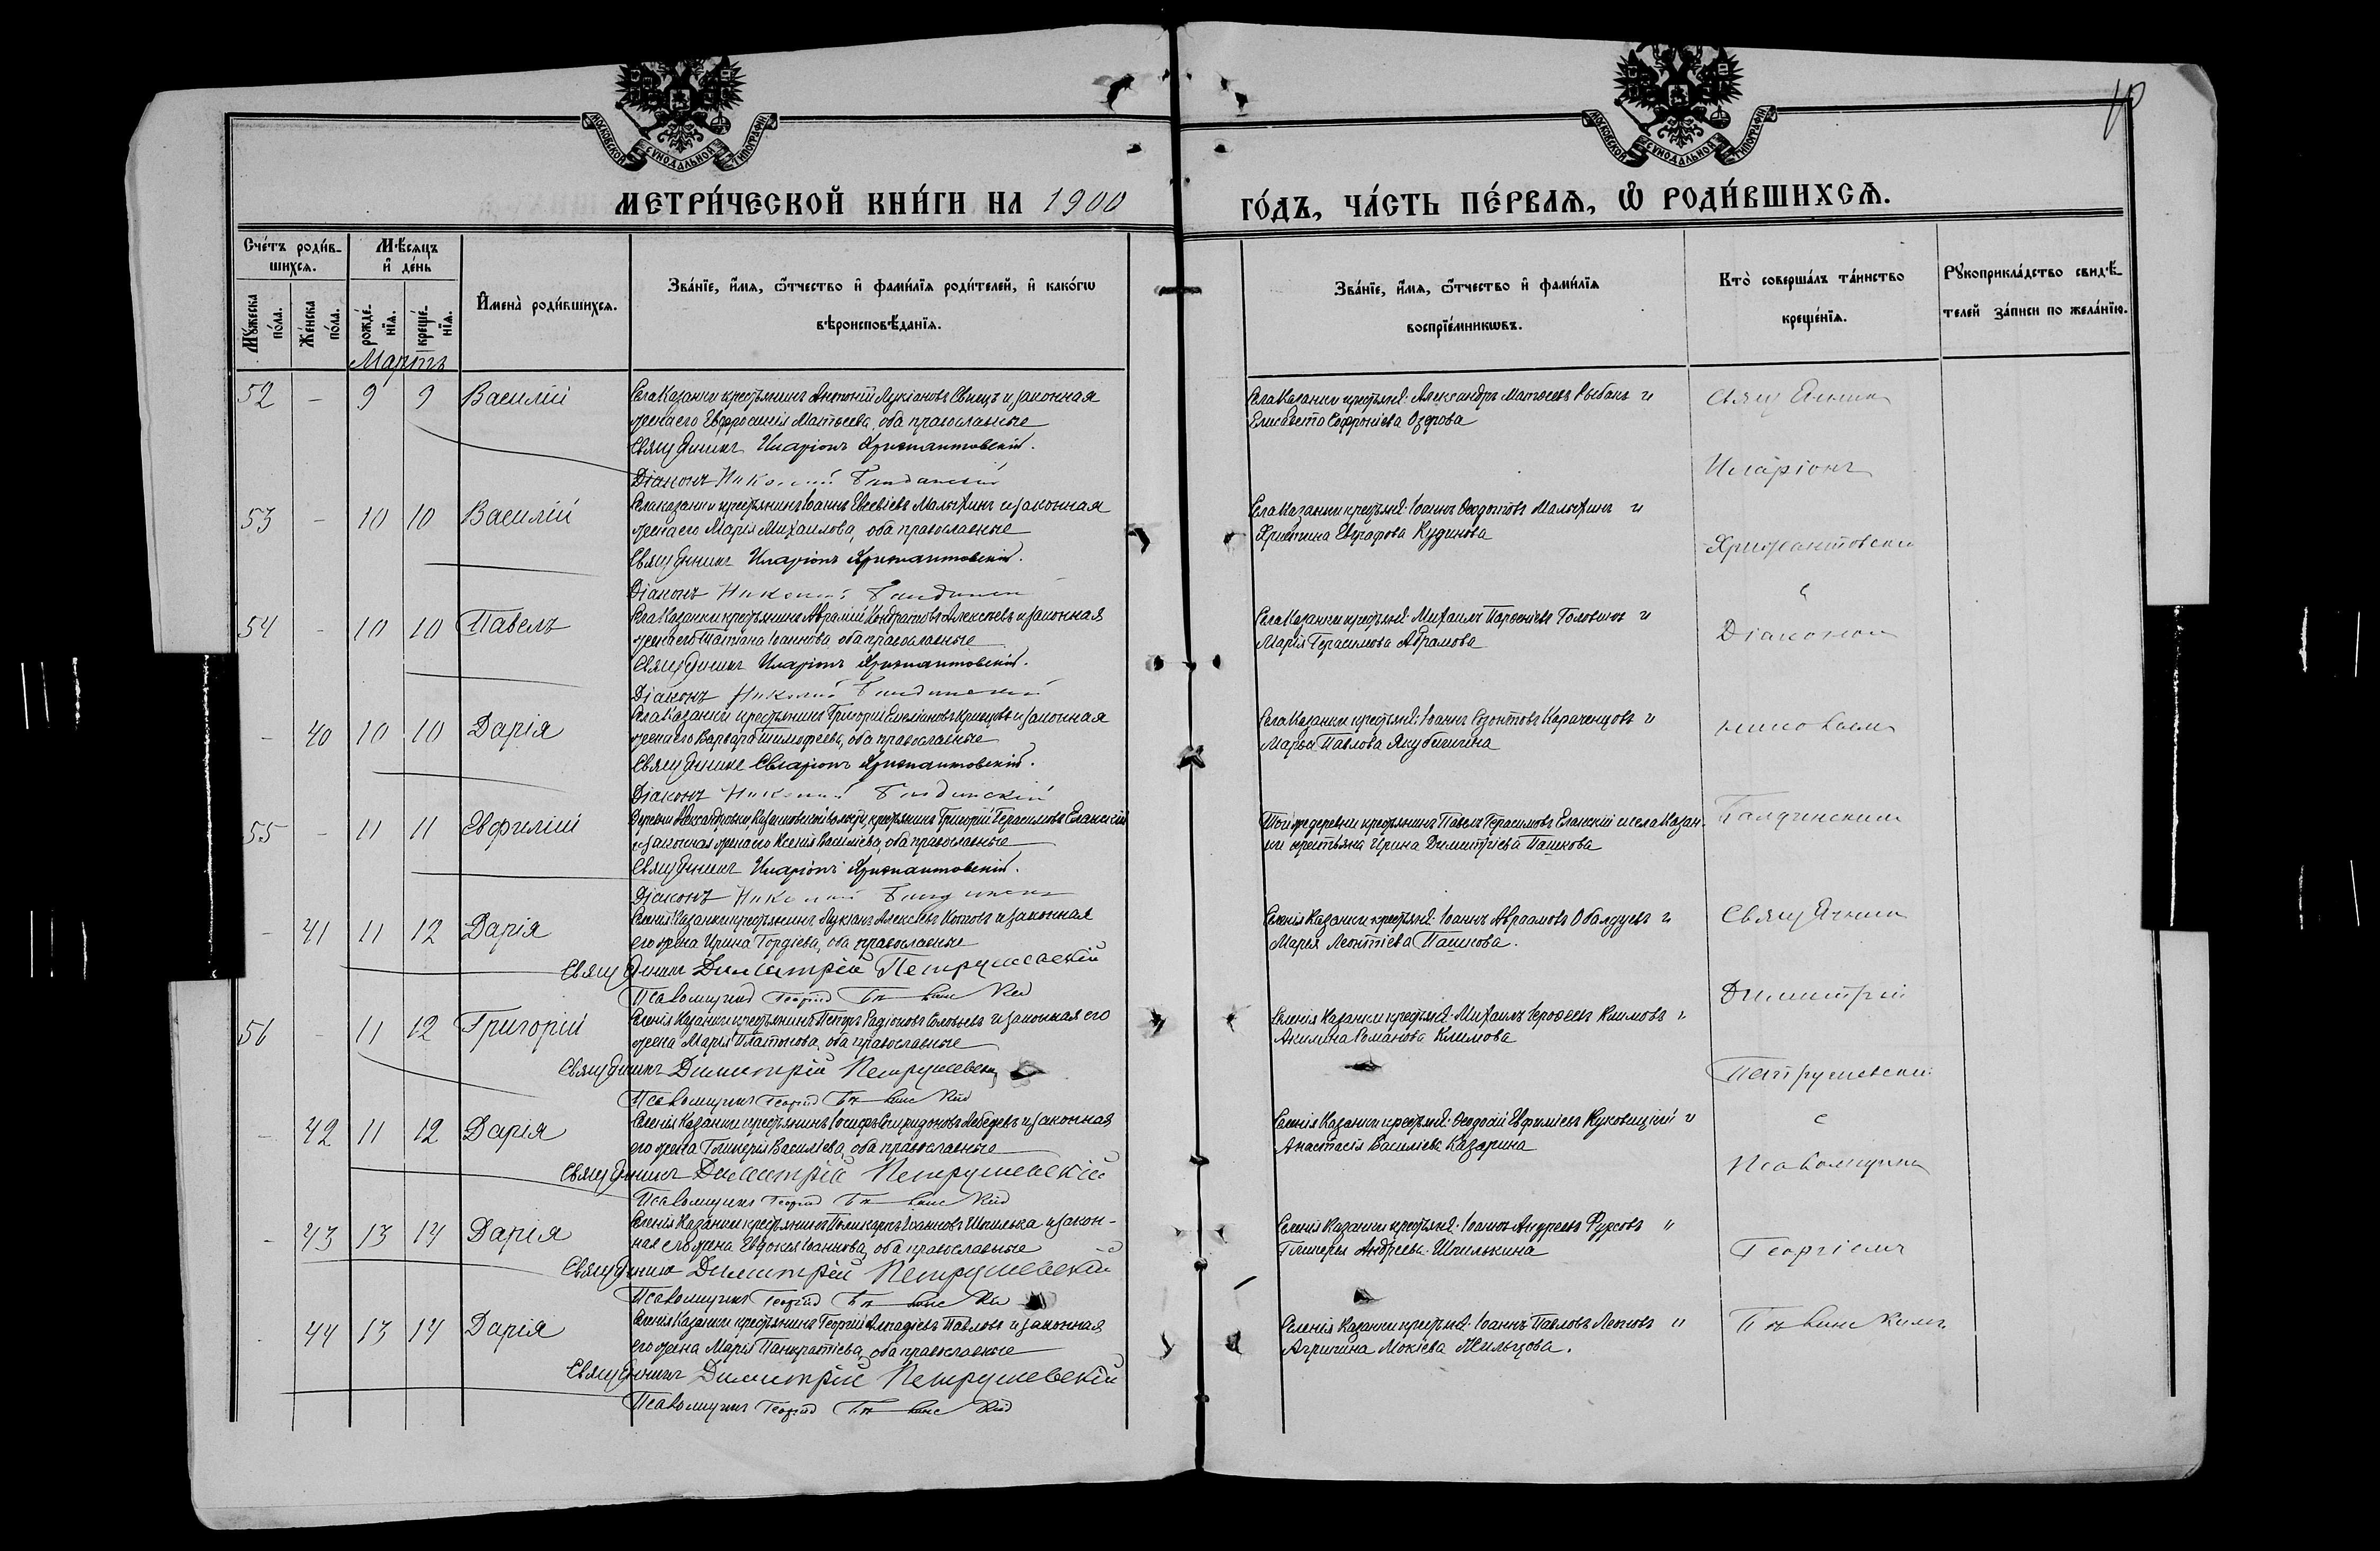 МОСКОВСКОЙ СѴНОДАЛЬНОЙ ТИПОГРАФІИ
МОСКОВСКОЙ СѴНОДАЛЬНОЙ ТИПОГРАФІИ
МЕТРИ́ЧЕСКОЙ КНИ́ГИ НА 1900
ГО́ДЪ, ЧА́СТЬ ПЕ́РВАѦ, Ѡ҆ РОДИ́ВШИХСѦ.
Сче́тъ роди́в-
шихсѧ.
Мꙋ́жеска по́ла.
Же́нска по́ла.
Мѣ́сѧцъ и҆ де́нь
рожде́-нїѧ.
креще́-нїѧ.
И҆мена̀ роди́вшихсѧ.
Зва́нїе, и҆́мѧ, ѻ҆́тчество и҆ фами́лїѧ роди́телей, и҆ како́гѡ
вѣроисповѣ́данїѧ.
Зва́нїе, и҆́мѧ, ѻ҆́тчество и҆ фами́лїѧ
воспрїе́мникѡвъ.
Кто̀ соверша́лъ та́инство
креще́нїѧ.
Рꙋкоприкла́дство свидѣ́-
телей за́писи по жела́нїю.
Мартъ
52 - 9 9 Василій
Села Казанки крестьянинъ Лукіановъ и законная
жена его Евфросинія Матѳеева, оба православные
Священникъ Иларіонъ Хрисантовскій.
Діаконъ Николай
Села Казанки крестьян: Александръ Матѳеевъ Рыбакъ и
Елисавета Софроніева Озерова
53 - 10 10 Василій
Села Казанки крестьянинъ Іоаннъ Евсевіевъ Малыхинъ и законная
жена его Марія Михаилова, оба православные
Священникъ Иларіонъ Хрисантовскій.
Діаконъ Николай
Села Казанки крестьян: Іоаннъ Ѳеодотовъ Малыхинъ и
Христина Евграфова Кудинова
54 - 10 10 Павелъ
Села Казанки крестьянинъ Аврамій Кондратовъ Алексѣевъ и законная
жена его Татіана Іоаннова, оба православные
Священникъ Иларіонъ Хрисантовскій.
Діаконъ Николай
Села Казанки крестьян: Михаилъ Парѳеніевъ Головинъ и
Марія Герасимова Абрамова
- 40 10 10 Дарія
Села Казанки крестьянинъ Григорій Емеліановъ и законная
жена его Варвара Тимоѳеева, оба православные
Священникъ Иларіонъ Хрисантовскій.
Діаконъ Николай
Села Казанки крестьян: Іоаннъ Созонтовъ Караченцовъ и
Марѳа Павлова
55 - 11 11 Евфимій
Деревни Александровки, Казанковской волости, крестьянинъ Григорій Герасимовъ Еланскій
и законная жена его Ксенія Василіева, оба православные
Священникъ Иларіонъ Хрисантовскій.
Діаконъ Николай
Той же деревни крестьянинъ Павелъ Герасимовъ Еланскій и села Казан-
ки крестьяна Ирина Димитріева Пашкова
- 41 11 12 Дарія
Селенія Казанки крестьянинъ Лукіанъ Алексѣевъ Котовъ и законная
его жена Ирина Гордіева, оба православные
Священникъ Димитрій Петрушевскій
Псаломщикъ Георгій
Селенія Казанки крестьян: Іоаннъ Авраамовъ Обалдуевъ и
Марѳа Леонтіева Пашкова.
56 - 11 12 Григорій
Селенія Казанки крестьянинъ Петръ Радіоновъ Соловьевъ и законная его
жена Марія Платонова, оба православные
Священникъ Димитрій Петрушевскій
Псаломщикъ Георгій
Селенія Казанки крестьян: Михаилъ Іероѳеевъ Климовъ и
Акилина Романова Климова
- 42 11 12 Дарія
Селенія Казанки крестьянинъ Іосифъ Спиридоновъ Лебедевъ и законная
его жена Гликерія Василіева, оба православные
Священникъ Димитрій Петрушевскій
Псаломщикъ Георгій
Селенія Казанки крестьян: Ѳеодосій Евфиміевъ Куковицкій и
Анастасія Василіева Казарина
- 43 13 14 Дарія
Селенія Казанки крестьянинъ Поликарпъ Іоанновъ Шпилька и закон-
ная его жена Евдокія Іоаннова, оба православные
Священникъ Димитрій Петрушевскій
Псаломщикъ Георгій
Селенія Казанки крестьян: Іоаннъ Андреевъ Фурсовъ и
Гликерія Андреева Шпилькина
- 44 13 14 Дарія
Селенія Казанки крестьянинъ Георгій Аркадіевъ Павловъ и законная
его жена Марія Панкратіева, оба православные
Священникъ Димитрій Петрушевскій
Псаломщикъ Георгій
Селенія Казанки крестьян: Іоаннъ Павловъ Леоновъ и
Агрипина Мокіева Жильцова.
Священник
Иларіонъ
Хрисантовскій
с
Діаконом
Николаем
Священник
Димитрій
Петрушевскій
с
Псаломщик
Георгіемъ